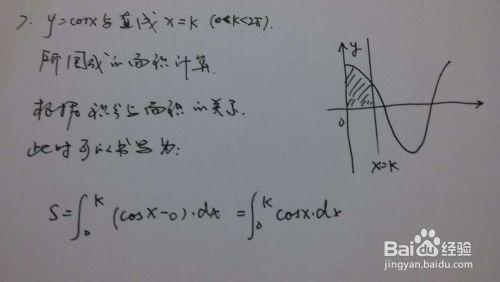 7. y=cosx与直线 x=k (0<k<2π).
所围成的面积计算.
根据积分与面积的关系.
此时可以书写为:
S=∫₀ᴷ (cosx-0)·dx =∫₀ᴷ cosx·dx
y
0
x=k
Baidu经验
jingyan.baidu.com